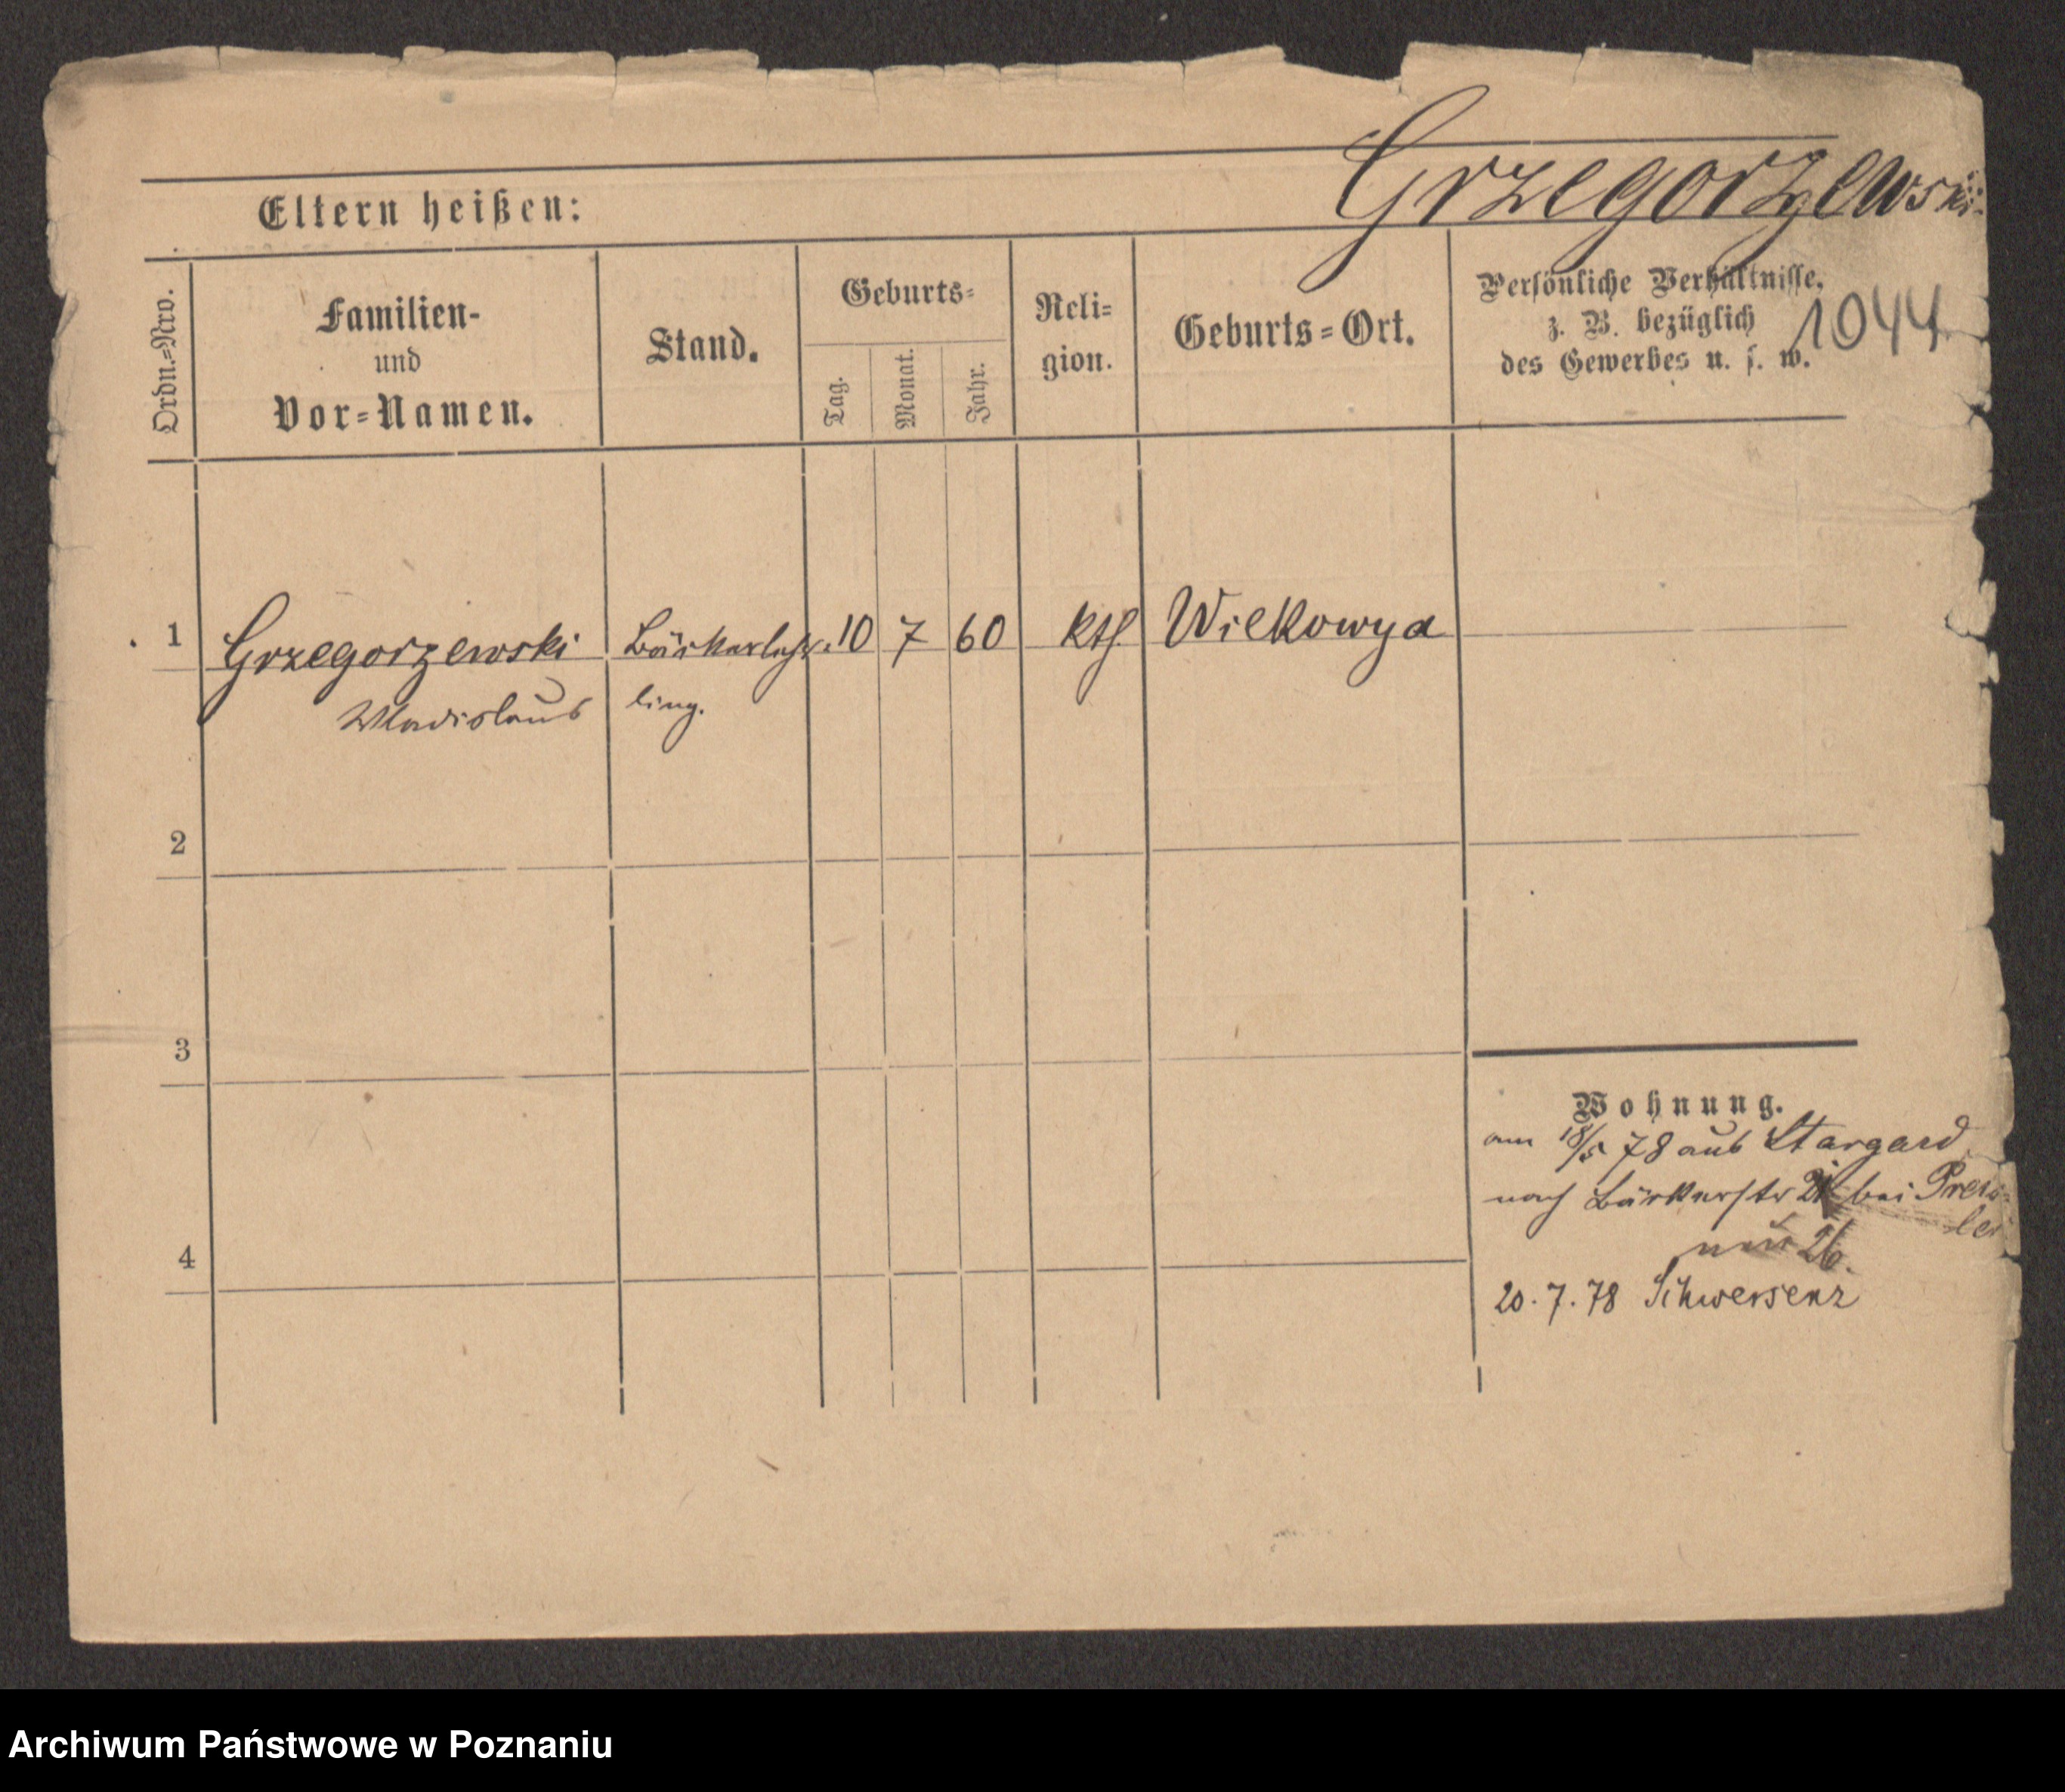 Grzegorzewski
Eltern heißen:
Ordn.=Nro.
Familien-
und
Vor=Namen.
Stand.
Geburts=
Tag.
Monat.
Jahr.
Reli=
gion.
Geburts=Ort.
Persönliche Verhältnisse,
z. B. bezüglich
des Gewerbes u. s. w.
1044
1 Grzegorzewski Bäckerlehr= 10 7 60 kth. Wilkowya
Wladislaus ling.
2
3
4
Wohnung.
am 18/5 78 aus Stargard
nach Bäckerstr 21 bei
26.
20.7.78 Schwersenz
Archiwum Państwowe w Poznaniu